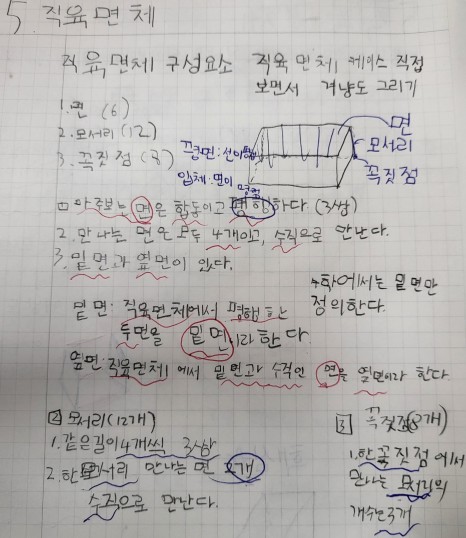 5. 직육면체
직육면체 구성요소 직육면체 케이스 직접
보면서 겨냥도 그리기
1. 면 (6)
2. 모서리 (12)
3. 꼭짓점 (8)
면
모서리
꼭짓점
입체: 면이
1 마주보는 면은 합동이고 평행하다 (3쌍)
2. 만나는 면은 모두 4개이고, 수직으로 만난다.
3. 밑면과 옆면이 있다.
수학에서는 밑면만
정의한다.
밑면: 직육면체에서 평행한
두면을 밑면이라 한다.
옆면: 직육면체에서 밑면과 수직인 면을 옆면이라 한다.
2 모서리(12개)
1. 같은길이 4개씩 3쌍
2. 한모서리 만나는 면 2개
수직으로 만난다.
3 꼭짓점(8개)
1. 한꼭짓점에서
만나는 모서리의
개수는 3개